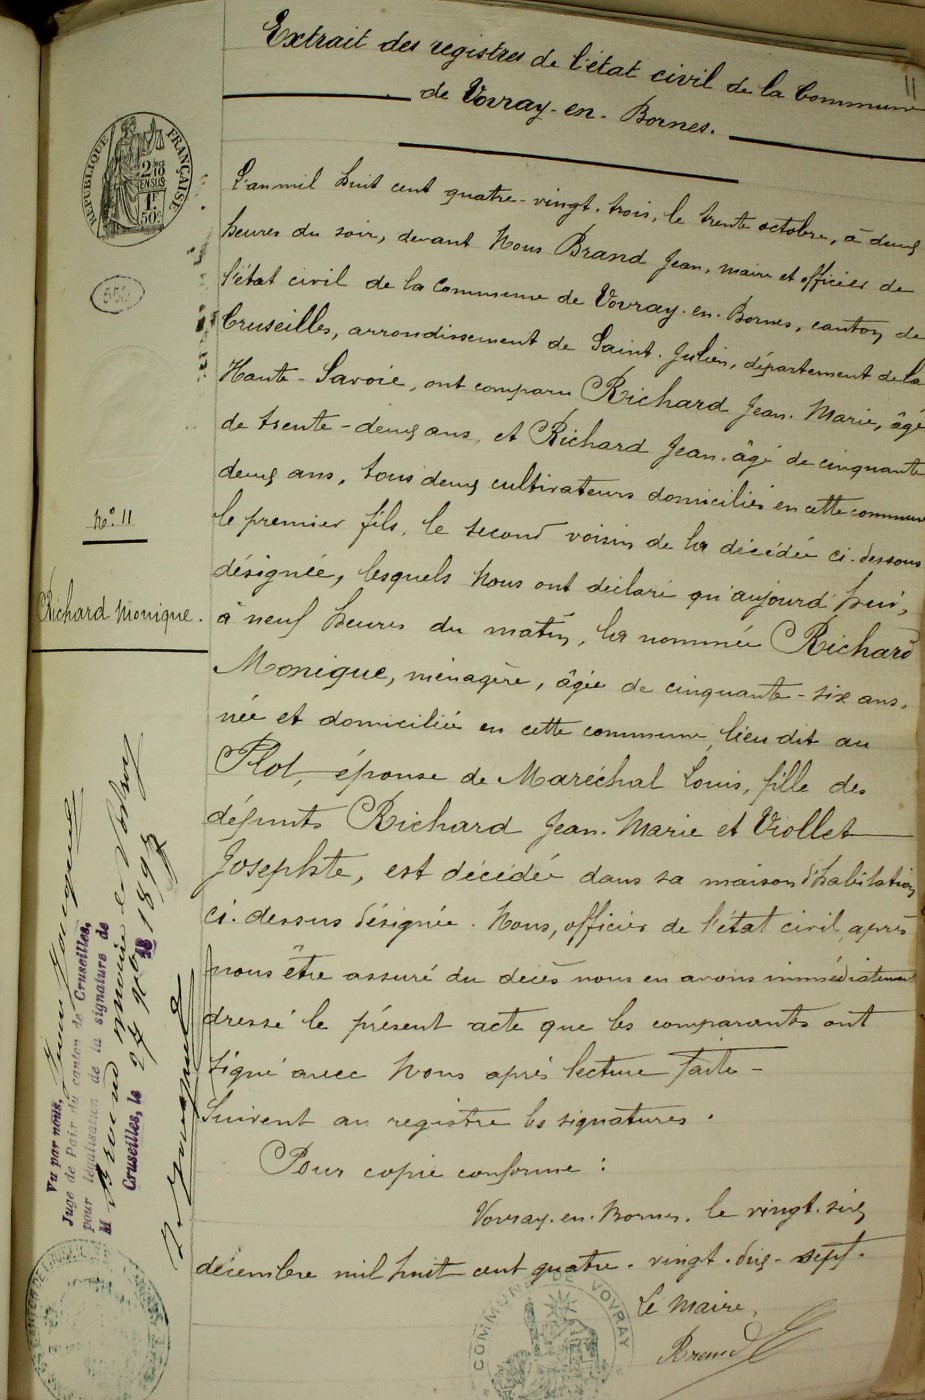 11
Extrait des registres de l'état civil de la Commune
de Vovray-en-Bornes.
RÉPUBLIQUE FRANÇAISE
2/10
EN SUS
1F
50c
L'an mil huit cent quatre-vingt-trois, le trente octobre, à deux
heures du soir, devant Nous Brand Jean, maire et officier de
l'état civil de la Commune de Vovray-en-Bornes, canton de
Cruseilles, arrondissement de Saint-Julien, département de la
Haute-Savoie, ont comparu Richard Jean-Marie, âgé
de trente-deux ans, et Richard Jean, âgé de cinquante
deux ans, tous deux cultivateurs domiciliés en cette commune
le premier fils, le second voisin de la décédée ci-dessous
désignée, lesquels Nous ont déclaré qu'aujourd'hui,
à neuf heures du matin, la nommée Richard
Monique, ménagère, âgée de cinquante-six ans,
née et domiciliée en cette commune, lieu dit au
Plot, épouse de Maréchal Louis, fille des
défunts Richard Jean-Marie et Viollet
Josephte, est décédée dans sa maison d'habitation
ci-dessus désignée. Nous, officier de l'état civil, après
nous être assuré du décès nous en avons immédiatement
dressé le présent acte que les comparants ont
signé avec Nous après lecture faite-
Suivent au registre les signatures.
Pour copie conforme :
Vovray-en-Bornes, le vingt-six
décembre mil huit cent quatre-vingt-dix-sept.
Le Maire,
Brand
COMMUNE DE VOVRAY
N° 11
Richard Monique.
Vu par nous,
Juge de Paix du canton de Cruseilles,
pour légalisation de la signature de
M Brand maire de Vovray
Cruseilles, le 27 Xbre 1897